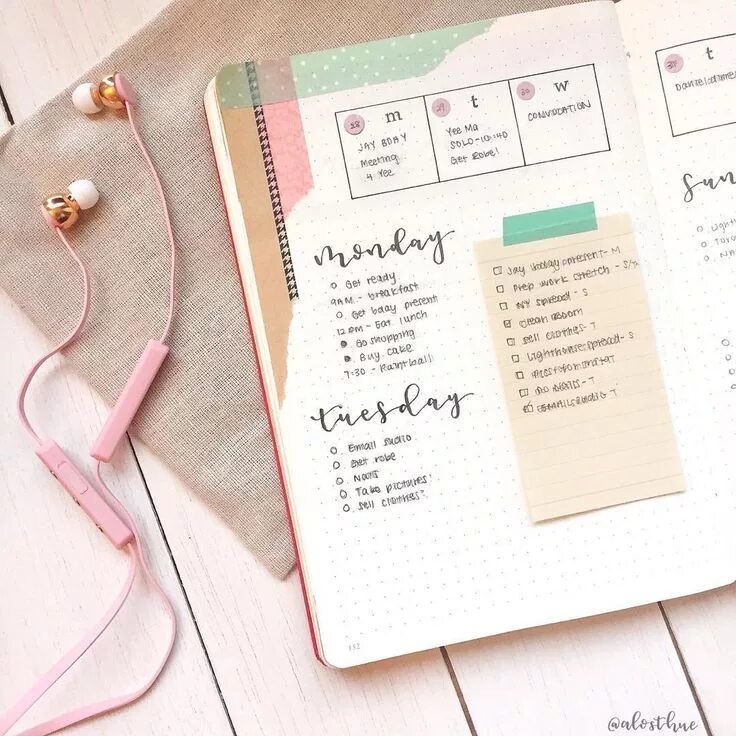 28 m
JAY BDAY
Meeting
4 Yee
29 t
Yee Ma
SOLO-10:40
Get Robe!
30 w
CONVOCATION
31 t
monday
Get ready
9AM - breakfast
Get bday present
12pm - Eat lunch
Go shopping
Buy cake
7:30 - Paintball
tuesday
Email audio
Get robe
Nails
Take pictures!
Sell clothes?
Jay bday present - M
Prep work stretch - S/M
NY spread - S
Clean room
Sell clothes - T
Lighthouse spread - S
Do nails - T
Email audio - T
Sun
Light
152
@alosthue